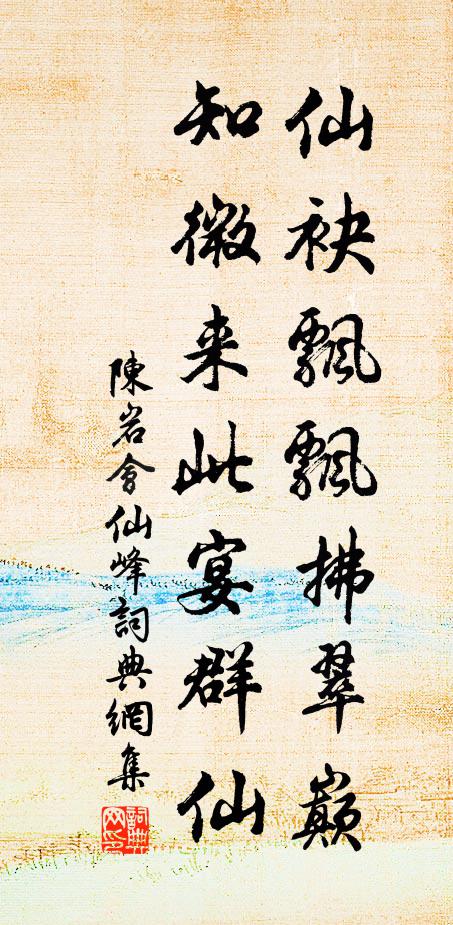 仙袂飄飄拂翠巔
知微来此宴群仙
陳岩會仙峰詞典網集
詞典网印